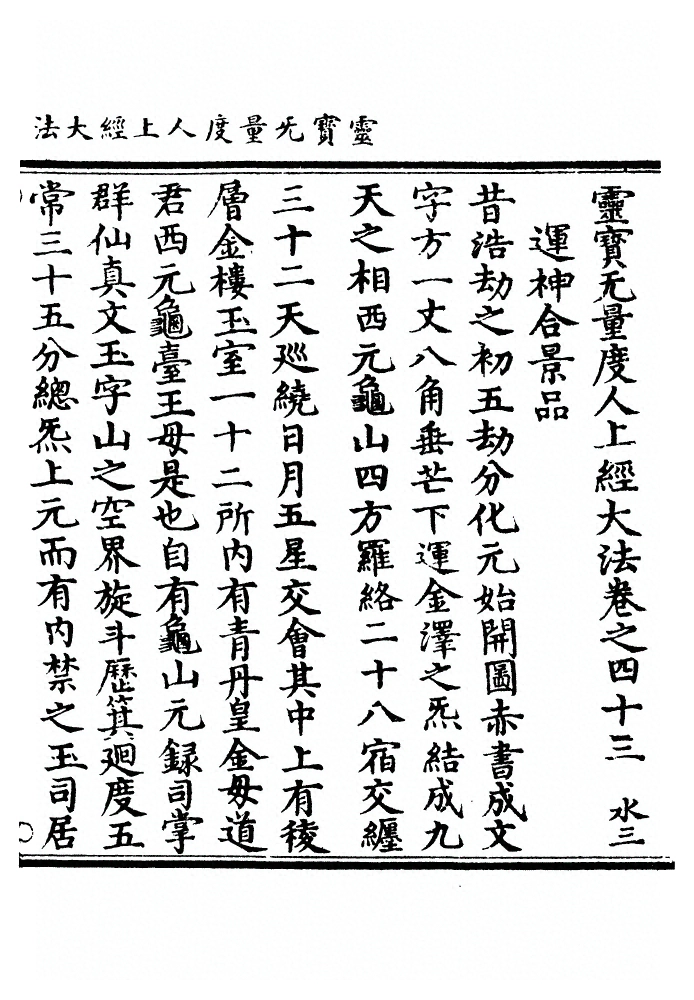 靈寶旡量度人上經大法
靈寶旡量度人上經大法卷之四十三　水三
運神合景品
昔浩劫之初五劫分化元始開圖赤書成文
字方一丈八角垂芒下運金澤之炁結成九
天之相西元龜山四方羅絡二十八宿交纏
三十二天廵繞日月五星交會其中上有稜
層金樓玉室一十二所內有青丹皇金母道
君西元龜臺王母是也自有龜山元録司掌
群仙真文玉字山之空界旋斗歷箕廻度五
常三十五分總炁上元而有內禁之玉司居